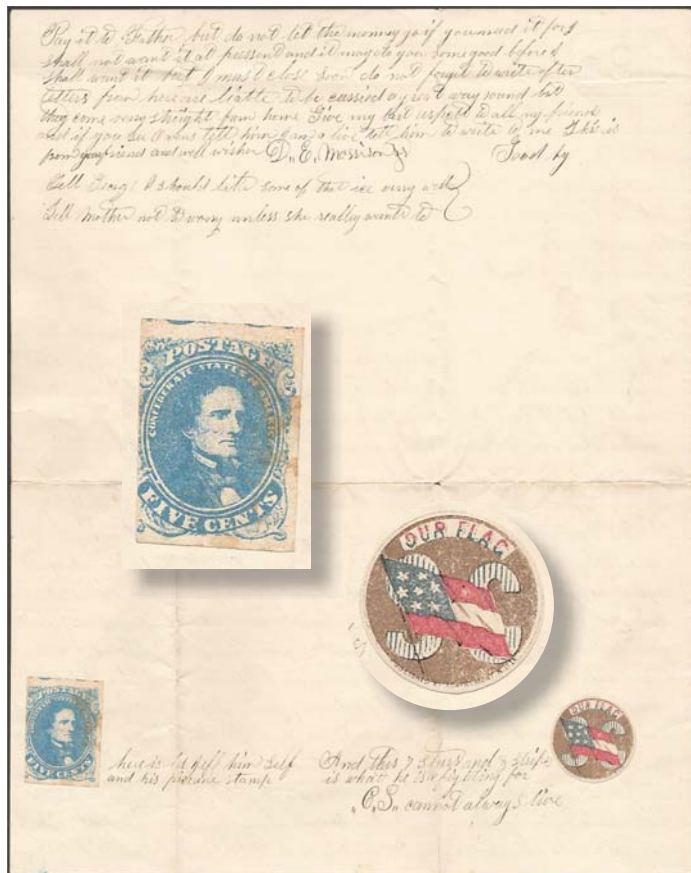 Pay it to Father but do not let the money go if you need it for I
shall not want it at pressent and it may do you some good before I
shall want it but I must close soon do not forget to write often
Letters from here are liable to be carried a great way round but
they come very straight from home Give my best respects to all my friends
and if you see tell him I am a live tell him to write to me this is
from your friend and well wisher D. E. Morrison Jr Good by
Tell I should like some of that ice very well
Tell Mother not to worry unless she really wants to
POSTAGE
CONFEDERATE STATES OF AMERICA
FIVE CENTS
OUR FLAG
CS
POSTAGE
FIVE CENTS
OUR FLAG
CS
here is him self
and his picture stamp
And this 7 stars and 3 stripes
is what he is a fighting for
"C.S." cannot always live